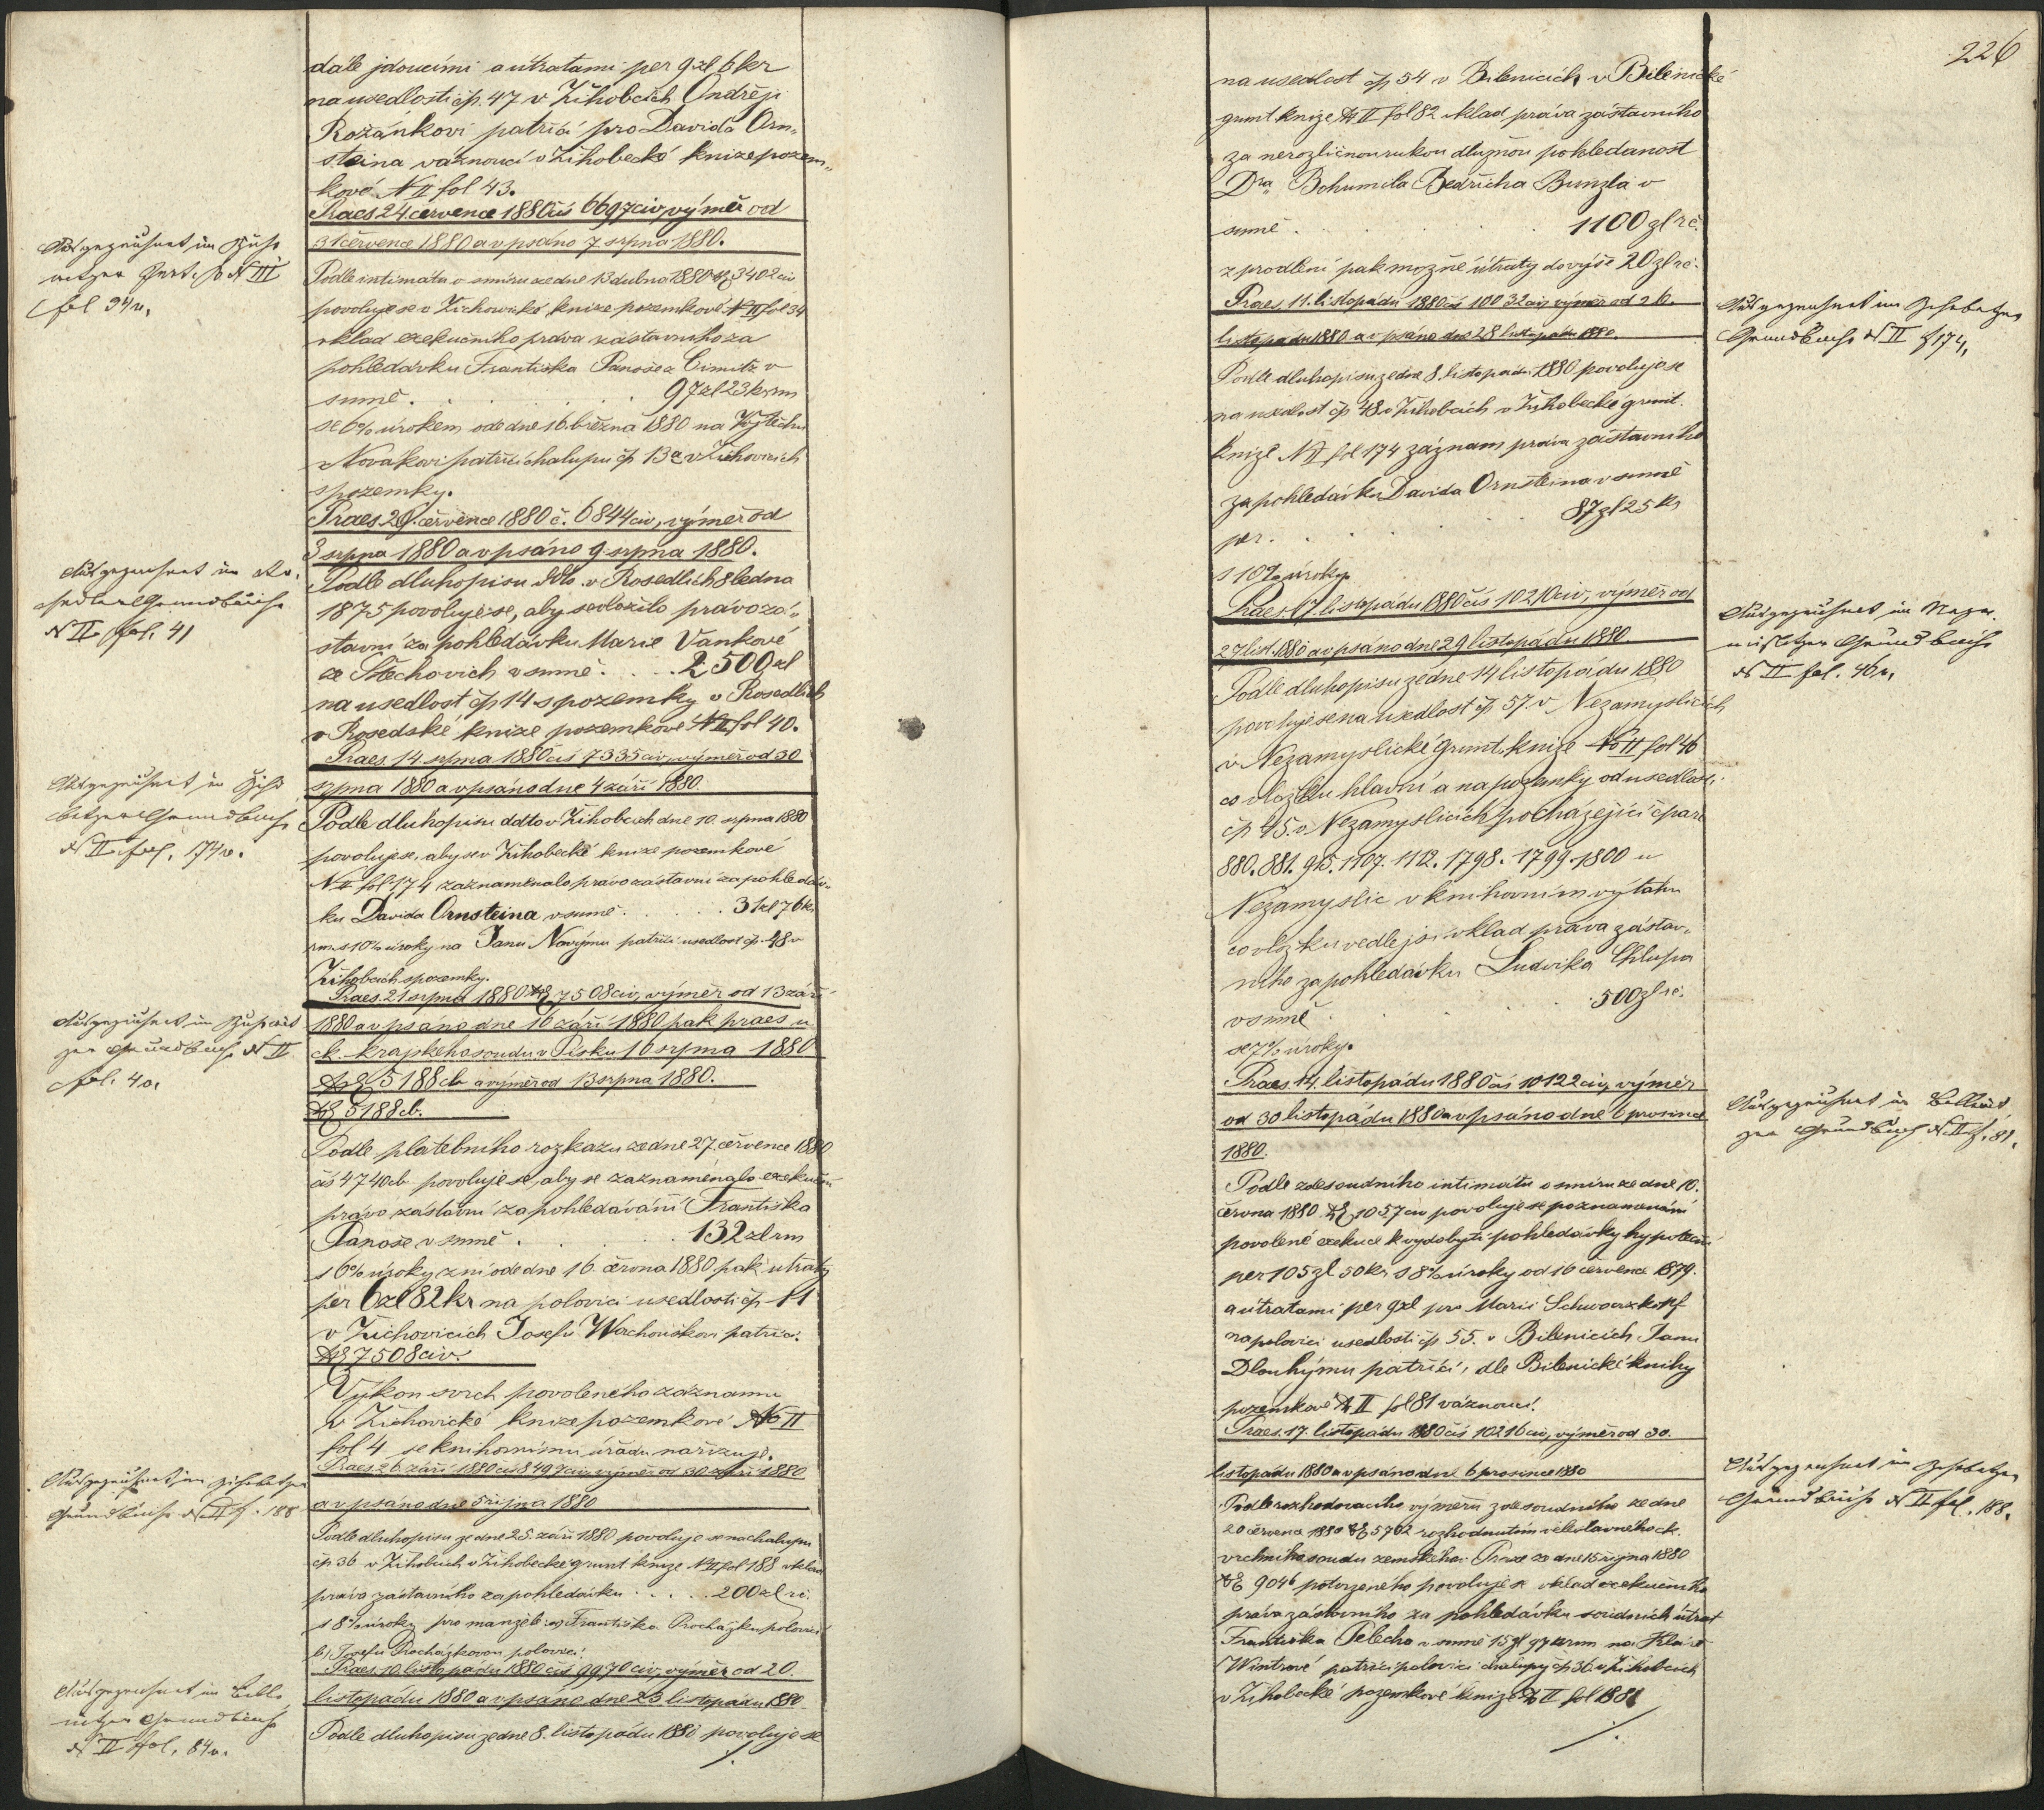 dále jdoucími a útratami per 9 zl 6 kr
na usedlosti čp. 47 v Žihobcích Ondřeji
Rožánkovi patřící pro Davida Orn„
steina váznoucí v Žihobecké knize pozem„
kové N II fol 43.
Praes 24 července 1880 čís 6697 civ, výměr od
31 července 1880 a vpsáno 7 srpna 1880.
Podle intimátu o smíru ze dne 13 dubna 1880 3402 civ
povoluje se v Žichovické knize pozemkové N II fol 34
vklad exekučního práva zástavního za
pohledávku Františka Panoše z Čimic v
sumě . . . . . 97 zl 23 kr rm
se 6% úrokem ode dne 16. března 1880 na Vojtěchu
Novákovi patřící chalupu čp 13a v Žichovicích
s pozemky.
Praes 29. července 1880 č. 6844 civ, výměr od
3 srpna 1880 a vpsáno 9 srpna 1880.
Podle dluhopisu ddto. v Rosedlích 8 ledna
1875 povoluje se, aby se vložilo právo zá„
stavní za pohledávku Marie Vaňkové
ze Štěchovic v sumě . . . . 2500 zl
na usedlost čp 14 s pozemky v Rosedlích
v Rosedské knize pozemkové N II fol 40.
Praes. 14. srpna 1880 čís 7335 civ, výměr od 30
srpna 1880 a vpsáno dne 4 září 1880.
Podle dluhopisu ddto v Žihobcích dne 10. srpna 1880
povoluje se, aby se v Žihobecké knize pozemkové
N II fol 174 zaznamenalo právo zástavní za pohledáv„
ku Davida Ornsteina v sumě . . . . . 31 zl 76 kr
rm. s 10% úroky na Janu Novýmu patřící usedlost čp. 48 v
Žihobcích s pozemky.
Praes. 21 srpna 1880 7508 civ, výměr od 13 září
1880 a vpsáno dne 16 září 1880 pak praes u
ck. krajského soudu v Písku 10 srpna 1880
5188 cb a výměr od 13 srpna 1880.
5188 cb.
Podle platebního rozkazu ze dne 27. července 1880
čís 4740 cb povoluje se, aby se zaznamenalo exekuční
právo zástavní za pohledávání Františka
Panoše v sumě . . . . 132 zl rm
s 6% úroky z ní ode dne 16. června 1880 pak útraty
per 6 zl 82 kr na polovici usedlosti čp 11
v Žichovicích Josefu Wachouškovi patřící.
7508 civ.
Výkon svrch povoleného záznamu
v Žichovické knize pozemkové No II
fol 4 se knihovnímu úřadu nařizuje.
Praes. 26 září 1880 čís 8497 civ, výměr od 30 září 1880
a vpsáno dne 5 října 1880
Podle dluhopisu ze dne 25. září 1880 povoluje se na chalupu
čp 36 v Žihobcích v Žihobecké grunt. knize N II fol 188 vklad
práva zástavního za pohledávku . . . . 200 zl rč.
s 8% úroky pro manžele a) Františka Procházku polovicí
b) Josefu Procházkovou polovicí.
Praes. 10. listopadu 1880 čís 9970 civ, výměr od 20.
listopadu 1880 a vpsáno dne 23 listopadu 1880
Podle dluhopisu ze dne 8. listopadu 1880 povoluje se
./.
Ausgezeichnet im
fol 34v.
Ausgezeichnet im Ro„
sedler Grundbuche
N II fol. 41
Ausgezeichnet im Žiho„
betzer Grundbuche
N II fol. 174v.
Ausgezeichnet im Žichowit
zer Grundbuche N II
fol. 4v.
Ausgezeichnet im Žihobetzer
Grundbuche N II f. 188
Ausgezeichnet im
nitzer Grundbuche
N II fol. 84v.
226
na usedlost čp 54 v Bilenicích v Bilenické
grunt. knize N II fol 82 vklad práva zástavního
za nerozličnou rukou dlužnou pohledanost
Dra Bohumila Bedřicha Bunzla v
sumě . . . . . 1100 zl rč.
z prodlení pak možné útraty do výše 20 zl rč.
Praes. 11. listopadu 1880 čís 10032 civ, výměr od 26.
listopadu 1880 a vpsáno dne 28 listopadu 1880.
Podle dluhopisu ze dne 8. listopadu 1880 povoluje se
na usedlost čp 48 v Žihobcích v Žihobecké grunt.
knize N II fol 174 záznam práva zástavního
za pohledávku Davida Ornsteina v sumě
per . . . . . 87 zl 25 kr
s 10% úroky.
Praes. 17. listopadu 1880 čís 10210 civ, výměr od
27 list. 1880 a vpsáno dne 29 listopadu 1880.
Podle dluhopisu ze dne 14 listopadu 1880
povoluje se na usedlost čp 57. v Nezamyslicích
v Nezamyslické grunt. knize No II fol 46
co vložku hlavní a na pozemky od usedlosti
čp 45. v Nezamyslicích pocházející čpar.
880. 881. 915. 1107. 1112. 1798. 1799. 1800 u
Nezamyslic v knihovním výtahu
co vložku vedlejší vklad práva zástav„
ního za pohledávku Ludvíka Chlupa
v sumě . . . . . 500 zl rč.
se 7% úroky.
Praes. 14. listopadu 1880 čís 10122 civ, výměr
od 30 listopadu 1880 a vpsáno dne 6 prosince
1880.
Podle zdesoudního intimátu o smíru ze dne 10.
června 1880 1057 civ povoluje se poznamenání
povolené exekuce k vydobytí pohledávky hypoteční
per 105 zl 50 kr s 8% úroky od 16 července 1879.
a útratami per 9 zl pro Marii Schwarzkopf
na polovici usedlosti čp 55. v Bilenicích Janu
Dlouhýmu patřící, dle Bilenické knihy
pozemkové N II fol 81 váznoucí.
Praes. 17. listopadu 1880 čís 10216 civ, výměr od 30.
listopadu 1880 a vpsáno dne 6 prosince 1880
Podle rozhodovacího výměru zdesoudního ze dne
20 července 1880 5702 rozhodnutím veleslavného ck.
vrchního soudu zemského v Praze ze dne 15 října 1880
9046 potvrzeného povoluje se vklad exekučního
práva zástavního za pohledávku soudních útrat
Františka Pelecha v sumě 15 zl 97 kr rm na Kláře
Wintrové patřící polovici chalupy čp 36. v Žihobcích
v Žihobecké pozemkové knize N II fol 188
./.
Ausgezeichnet im Žihobetzer
Grundbuche N II f 174,
Ausgezeichnet im Neza„
mislitzer Grundbuche
N II fol. 46v,
Ausgezeichnet im
zer Grundbuch N II f. 81,
Ausgezeichnet im Žihobetzer
Grundbuche N II fol. 188,